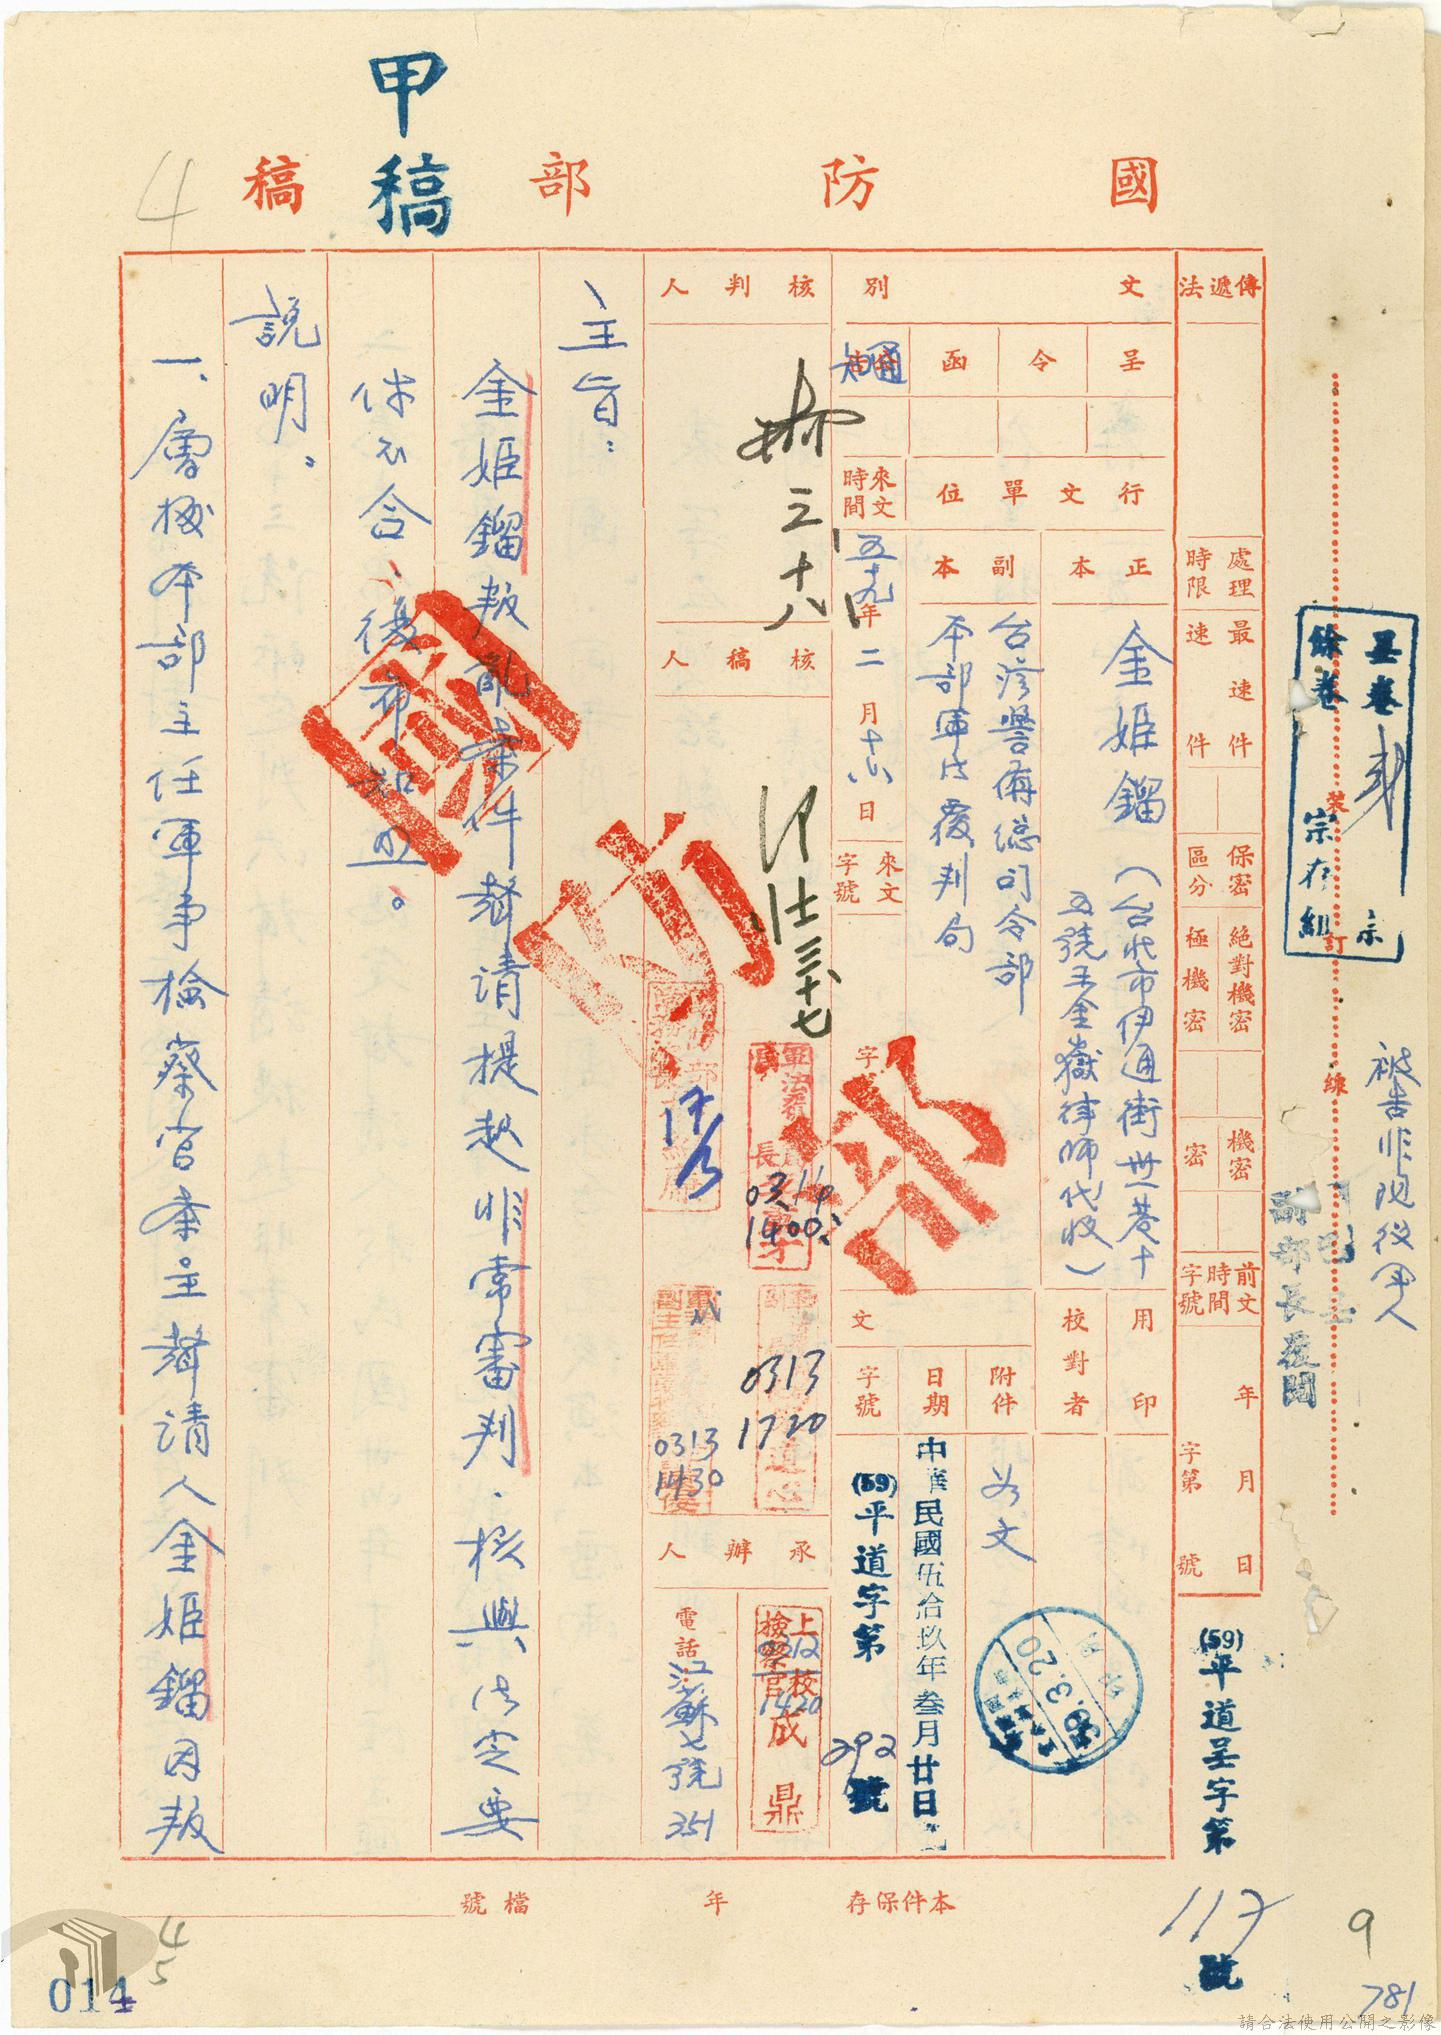 國防部稿
甲稿
4
傳遞法
處理時限
最速件
速件
保密區分
絕對機密
極機密
機密
密
前文時間字號
年月日
字第號
(59)平道呈字第117號
文別
呈
令
函
通知
行文單位
正本
金姬鎦(台北市伊通街卅一巷十
五號王金嶽律師代收)
副本
台灣警備總司令部
本部軍法覆判局
來文時間
五十九年二月十六日
來文字號
字第號
用印
校對者
附件
如文
發文
日期
中華民國伍拾玖年叁月廿日
字號
(59)平道字第292號
59.3.20
核判人
三、十八
核稿人
三十七
03.14
1400
0313
1720
0313
1430
承辦人
上校檢察官成鼎
0312
1420
電話
江蘇七號
251
國防部
主旨:
金姬鎦叛亂案件聲請提起非常審判,核與法定要
件不合,復希知照。
說明:
一、層報本部主任軍事檢察官案呈聲請人金姬鎦因叛
本件保存年
檔號
呈卷
餘卷
宗存組
裝訂線
被告非現役軍人
副部長後閱
4
5
014
9
781
請合法使用公開之影像